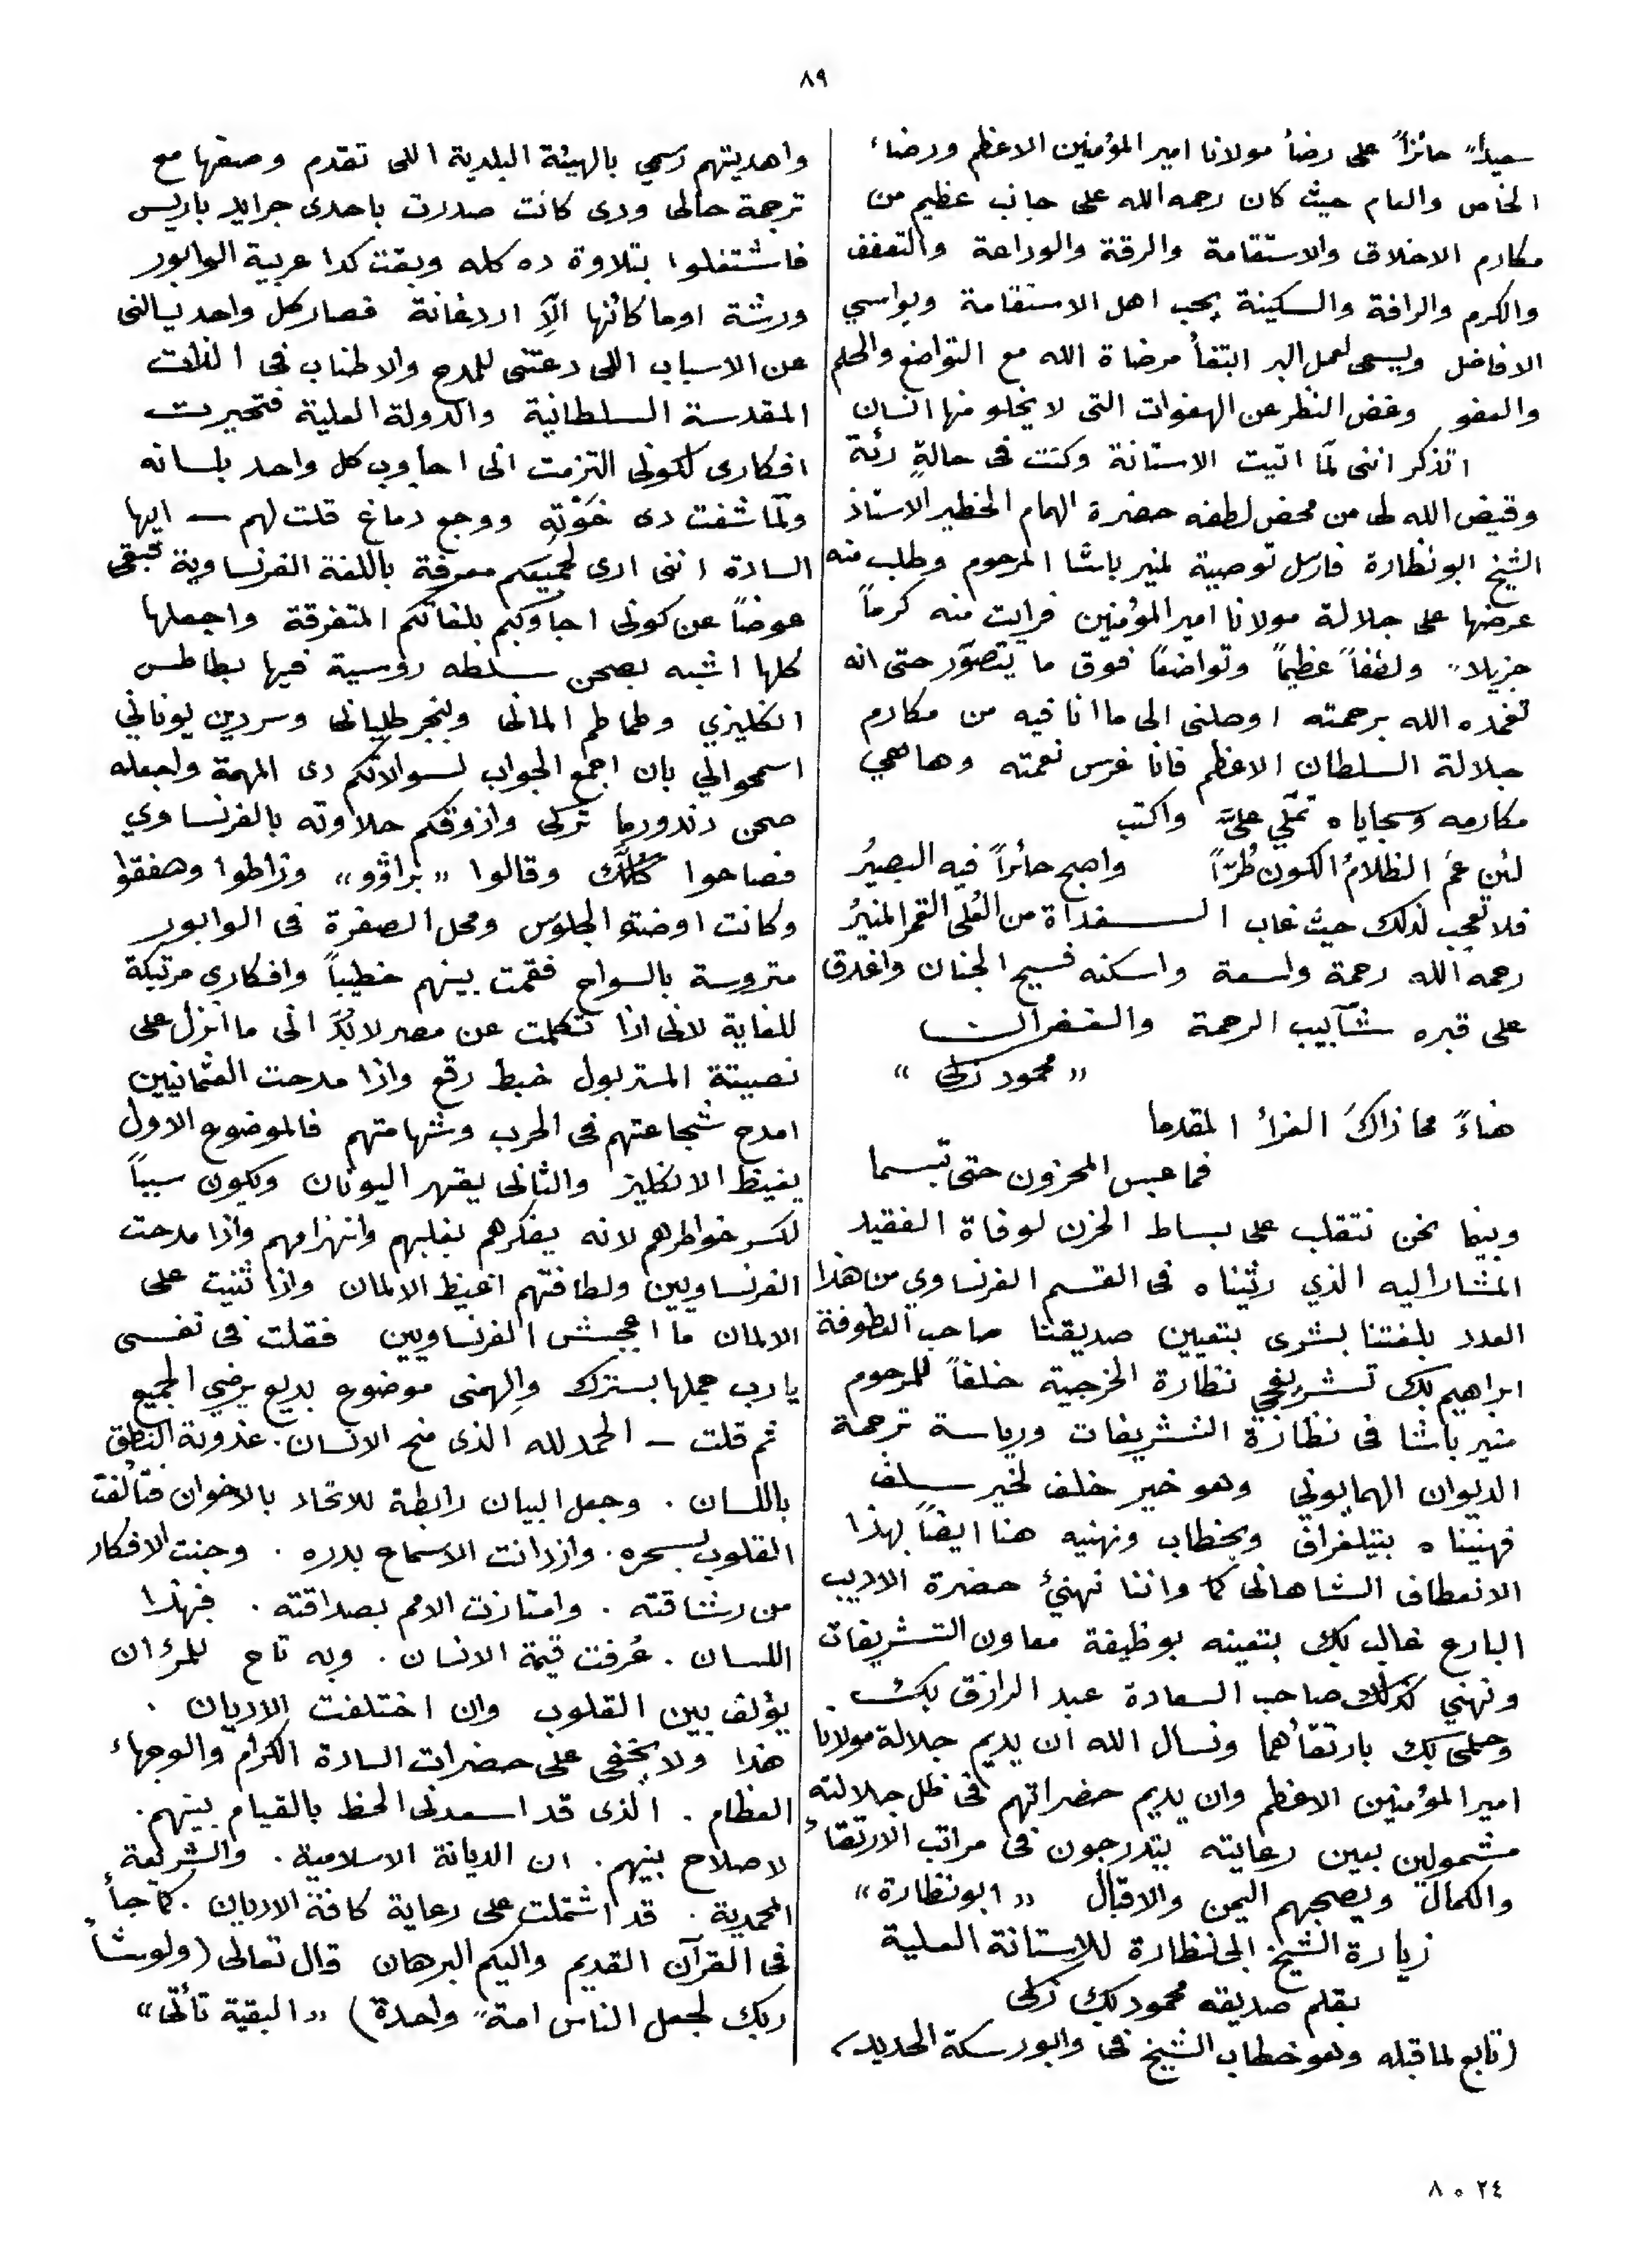 ٨٩
سعيداً حائزاً على رضأ مولانا امير المؤمنين الاعظم ورضاء
الخاص والعام حيث كان رحمه الله على جانب عظيم من
مكارم الاخلاق والاستقامة والرقة والوداعة والتعفف
والكرم والرافة والسكينة يحب اهل الاستقامة ويواسي
الافاضل ويسعى لعمل البر ابتغأ مرضاة الله مع التواضع والحلم
والعفو وغض النظر عن الهفوات التى لا يخلو منها انسان
اتذكر اننى لمّا اتيت الاستانة وكنت فى حالةٍ رثة
وقيض الله لى من محض لطفه حضرة الهمام الخطير الاستاذ
الشيخ ابو نظارة فارسل توصية لمنير باشا المرحوم وطلب منه
عرضها على جلالة مولانا امير المؤمنين فرايت منه كرماً
جزيلاً ولطفاً عظيماً وتواضعاً فوق ما يتصوّر حتى انه
تغمده الله برحمته اوصلنى الى ما انا فيه من مكارم
جلالة السلطان الاعظم فانا غرس نعمته وها هي
مكارمه وسجاياه تملّي علىّ واكتب
لئن عمُ الظلامُ الكون طُرّاً واصبح حائراً فيه البصيرُ
فلا تعجب لذلك حيث غاب الــغداة من العُلى القمر المنيرُ
رحمه الله رحمة واسعة واسكنه فسيح الجنان واغدق
على قبره شآبيب الرحمة والغفران
« محمود زكى »
هناءً محا ذاكَ العزأ المقدما
فما عبس المحزون حتى تبسما
وبينما نحن نتقلب على بساط الحزن لوفاة الفقيد
المشار اليه الذي رثيناه فى القسم الفرنساوي من هذا
العدد بلغتنا بشرى بتعيين صديقنا صاحب العطوفة
ابراهيم بك تشريفجي نظارة الخرجية خلفاً للمرحوم
منير باشا فى نظارة التشريفات ورياسة ترجمة
الديوان الهمايوني وهو خير خلف لخير سلف
فهنيناه بتيلغراف وبخطاب ونهنيه هنا ايضاً بهذا
الانعطاف الشاهانى كما واننا نهنئ حضرة الاديب
البارع غالب بك بتعينه بوظيفة معاون التشريفات
ونهني كذلك صاحب السعادة عبد الرازق بك
وحلمى بك بارتقأهما ونسال الله ان يديم جلالة مولانا
امير المؤمنين الاعظم وان يديم حضراتهم فى ظل جلالته
مشمولين بعين رعايته يتدرجون فى مراتب الارتقاء
والكمال ويصحبهم اليمن والاقبال « ابو نظارة »
زيارة الشيخ ابى نظارة للاستانة العلية
بقلم صديقه محمود بك زكى
(تابع لما قبله وهو خطاب الشيخ فى وابور سكة الحديد)
واهديتهم رسمي بالهيئة البلدية اللى تقدم وصفها مع
ترجمة حالى ودى كانت صدرت باحدى جرايد باريس
فاشتغلوا بتلاوة ده كله وبقت كدا عربية الوابور
ورشة اوما كانها الّا اردغانة فصار كل واحد يسالنى
عن الاسباب اللى دعتنى للمدح والاطناب فى الذات
المقدسة السلطانية والدولة العلية فتحيرت
افكارى لكونى التزمت انى اجاوب كل واحد بلسانه
ولمّا شفت دى خَوْتِه ووجع دماغ قلت لهم — ايها
السادة اننى ارى لجميعكم معرفة باللغة الفرنساوية فبقى
عوضاً عن كونى اجاوبكم بلغاتكم المتفرقة واجعلها
كلها اشبه بصحن سلطه روسية فيها بطاطس
انكليزي وطماطم المانى وبنجر طليانى وسردين يوناني
اسمحوا لي بان اجمع الجواب لسوالاتكم دى المهمة واجعله
صحن دندورما تركى واذوقكم حلاوته بالفرنساوي
فصاحوا كُلُّك وقالوا « براڤو» وزاطوا وصفقوا
وكانت اوضتو الجلوس ومحل الصفرة فى الوابور
متروسة بالسواح فقمت بينهم خطيباً وافكارى مرتبكة
للغاية لانى اذا تكلمت عن مصر لابُدّ انى ما انزل على
نصيبتة المستر بول خبط رقع واذا مدحت العثمانيين
امدح شجاعتهم فى الحرب وشهامتهم فالموضوع الاول
يغيظ الانكليز والثانى يقهر اليونان ويكون سبباً
لكسر خواطرهم لانه يفكرهم بغلبهم وانهزامهم واذا مدحت
الفرنساويين ولطافتهم اغيظ الالمان واذا ثنيت على
الالمان ما اعجبش الفرنساويين فقلت فى نفسى
يا رب جملها بسترك والهمنى موضوع بديع يرضي الجميع
ثم قلت — الحمد لله الذى منح الانسان. عذوبة النطق
باللسان. وجعل البيان رابطة للاتحاد بالاخوان فتألفت
القلوب بسحره. وازدانت الاسماع بدرره. وجنت الافكار
من رشاقته. وامتازت الامم بصداقته. فبهذا
اللسان. عُرفت قيمة الانسان. وبه تاح للمرؤ ان
يؤلف بين القلوب وان اختلفت الاديان.
هذا ولا يخفى على حضرات السادة الكرام والوجهاء
العظام. الذى قد اسعدنى الحظ بالقيام بينهم.
لاصلاح بينهم. ان الديانة الاسلامية. والشريعة
المحمدية. قد اشتملت على رعاية كافة الاديان. كما جأ
فى القرآن القديم واليكم البرهان قال تعالى (ولو شأ
ربك لجعل الناس امةً واحدة) « البقية تأتى »
٢٤ ٥ ٨